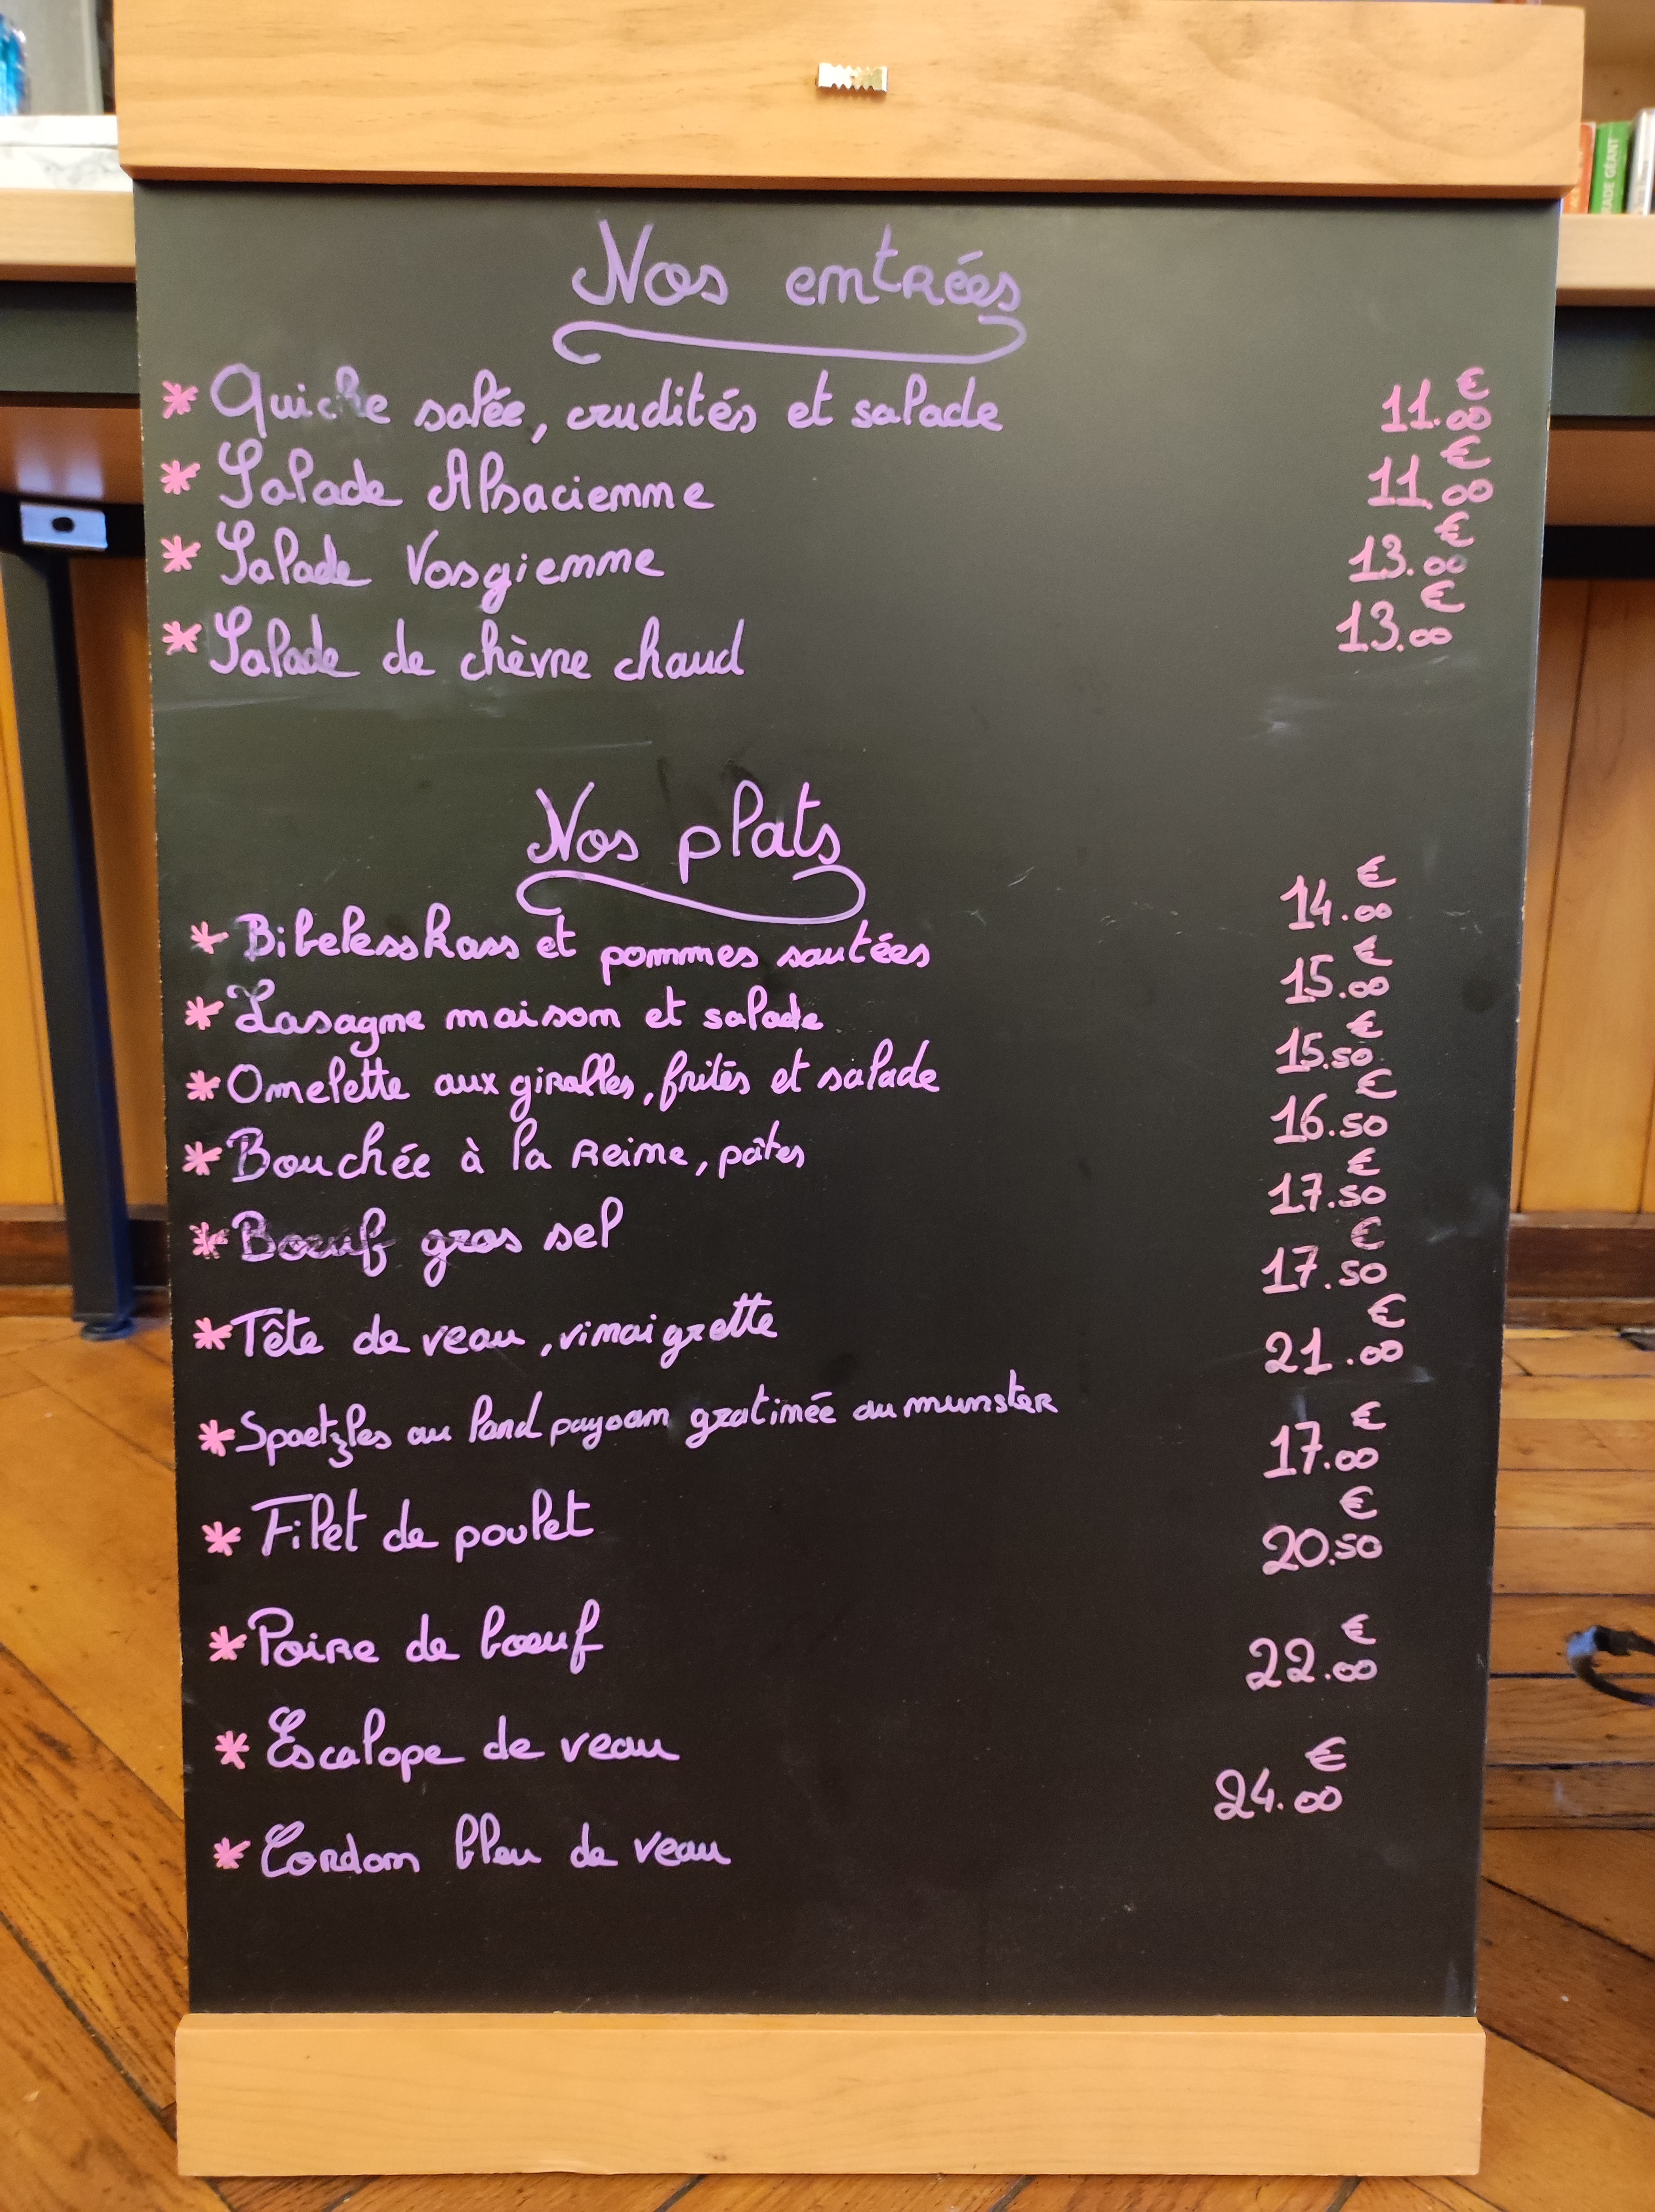 Nos entrées
* Quiche salée, crudités et salade 11.00 €
* Salade Alsacienne 11.00 €
* Salade Vosgienne 13.00 €
* Salade de chèvre chaud 13.00 €
Nos plats
* Bibelesskass et pommes sautées 14.00 €
* Lasagne maison et salade 15.00 €
* Omelette aux girolles, frites et salade 15.50 €
* Bouchée à la reine, pâtes 16.50 €
* Boeuf gros sel 17.50 €
* Tête de veau, vinaigrette 17.50 €
* Spaetzles au lard paysan gratinée au munster 21.00 €
* Filet de poulet 17.00 €
* Poire de boeuf 20.50 €
* Escalope de veau 22.00 €
* Cordon bleu de veau 24.00 €
GÉANT